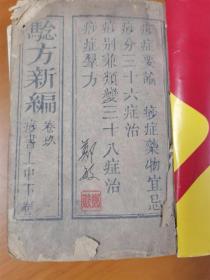 痧症要論 痧症藥物宜忌
痧分三十六症治
痧别兼類變三十八症治
痧症羣方
鄭敏
驗方新編
卷玖
痧書上中下卷